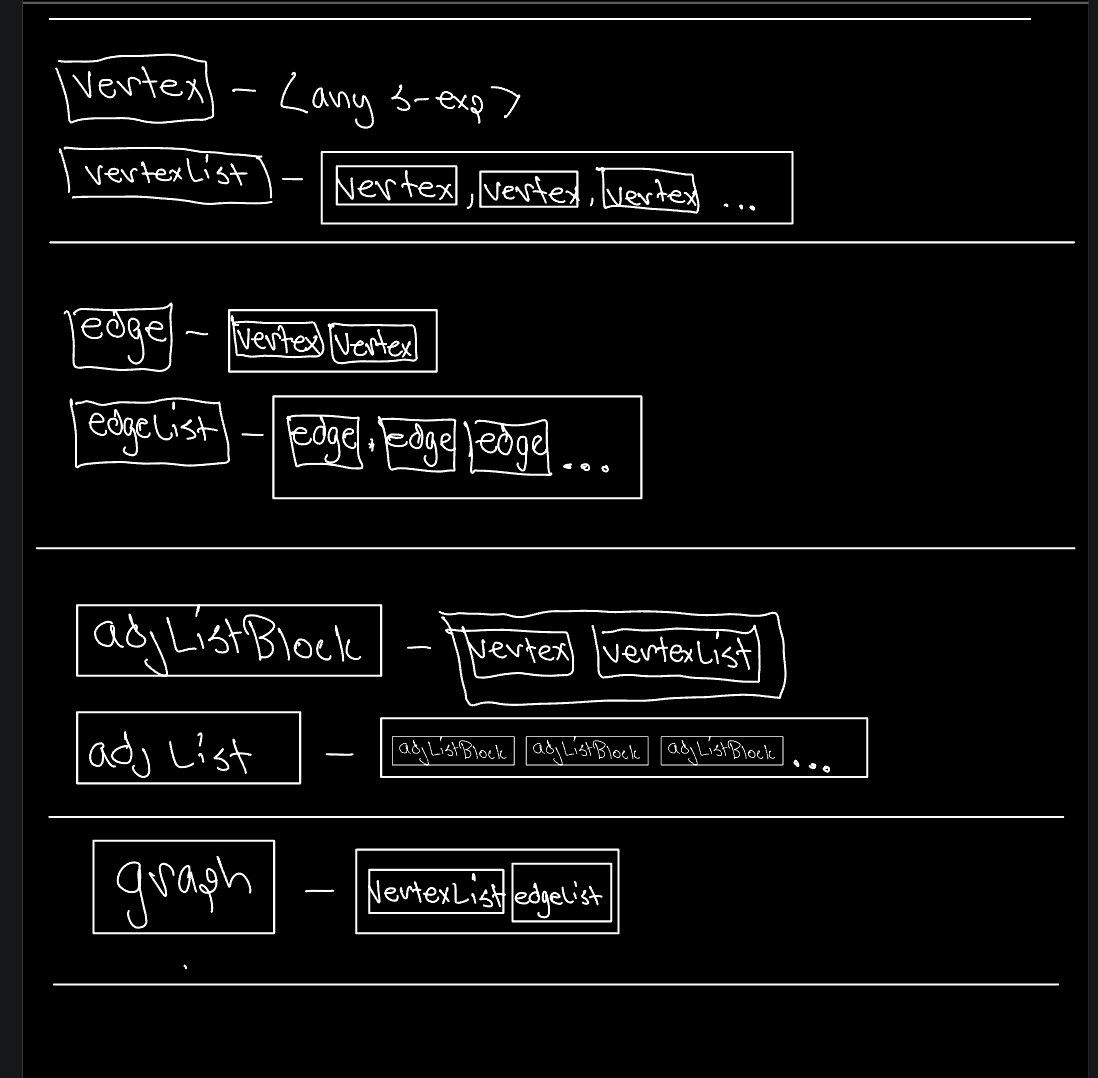 vertex - <any s-exp>
vertexList - vertex, vertex, vertex ...
edge - vertex vertex
edgeList - edge, edge, edge ...
adjListBlock - vertex vertexList
adj List - adjListBlock adjListBlock adjListBlock ...
graph - vertexList edgelist